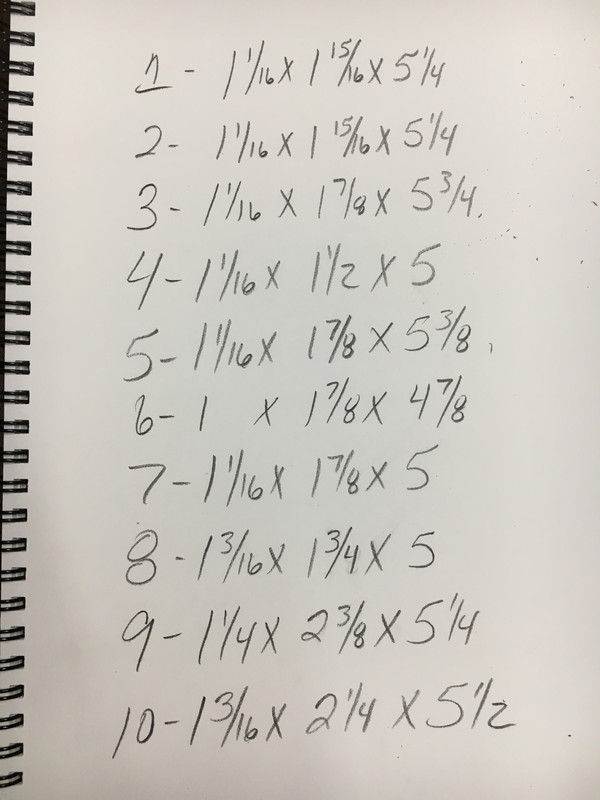 1 - 1 1/16 X 1 15/16 X 5 1/4
2 - 1 1/16 X 1 15/16 X 5 1/4
3 - 1 1/16 X 1 7/8 X 5 3/4.
4 - 1 1/16 X 1 1/2 X 5
5 - 1 1/16 X 1 7/8 X 5 3/8
6 - 1 X 1 7/8 X 4 7/8
7 - 1 1/16 X 1 7/8 X 5
8 - 1 3/16 X 1 3/4 X 5
9 - 1 1/4 X 2 3/8 X 5 1/4
10 - 1 3/16 X 2 1/4 X 5 1/2